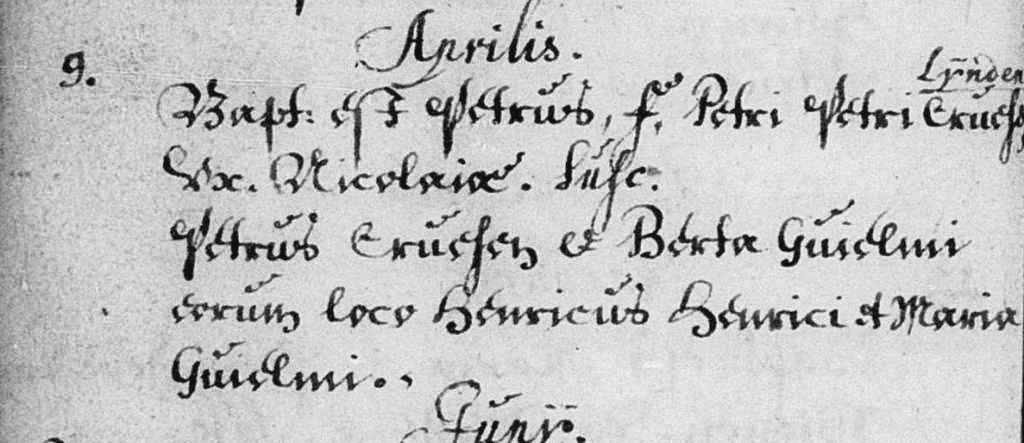 Aprilis.
9.
Lÿnden
Bapt: est Petrus, f. Petri Petri Cruesen
Vx. Nicolaiæ. Susc.
Petrus Cruesen & Berta Guielmi
eorum loco Henricus Henrici et Maria
Guielmi.
Junÿ.